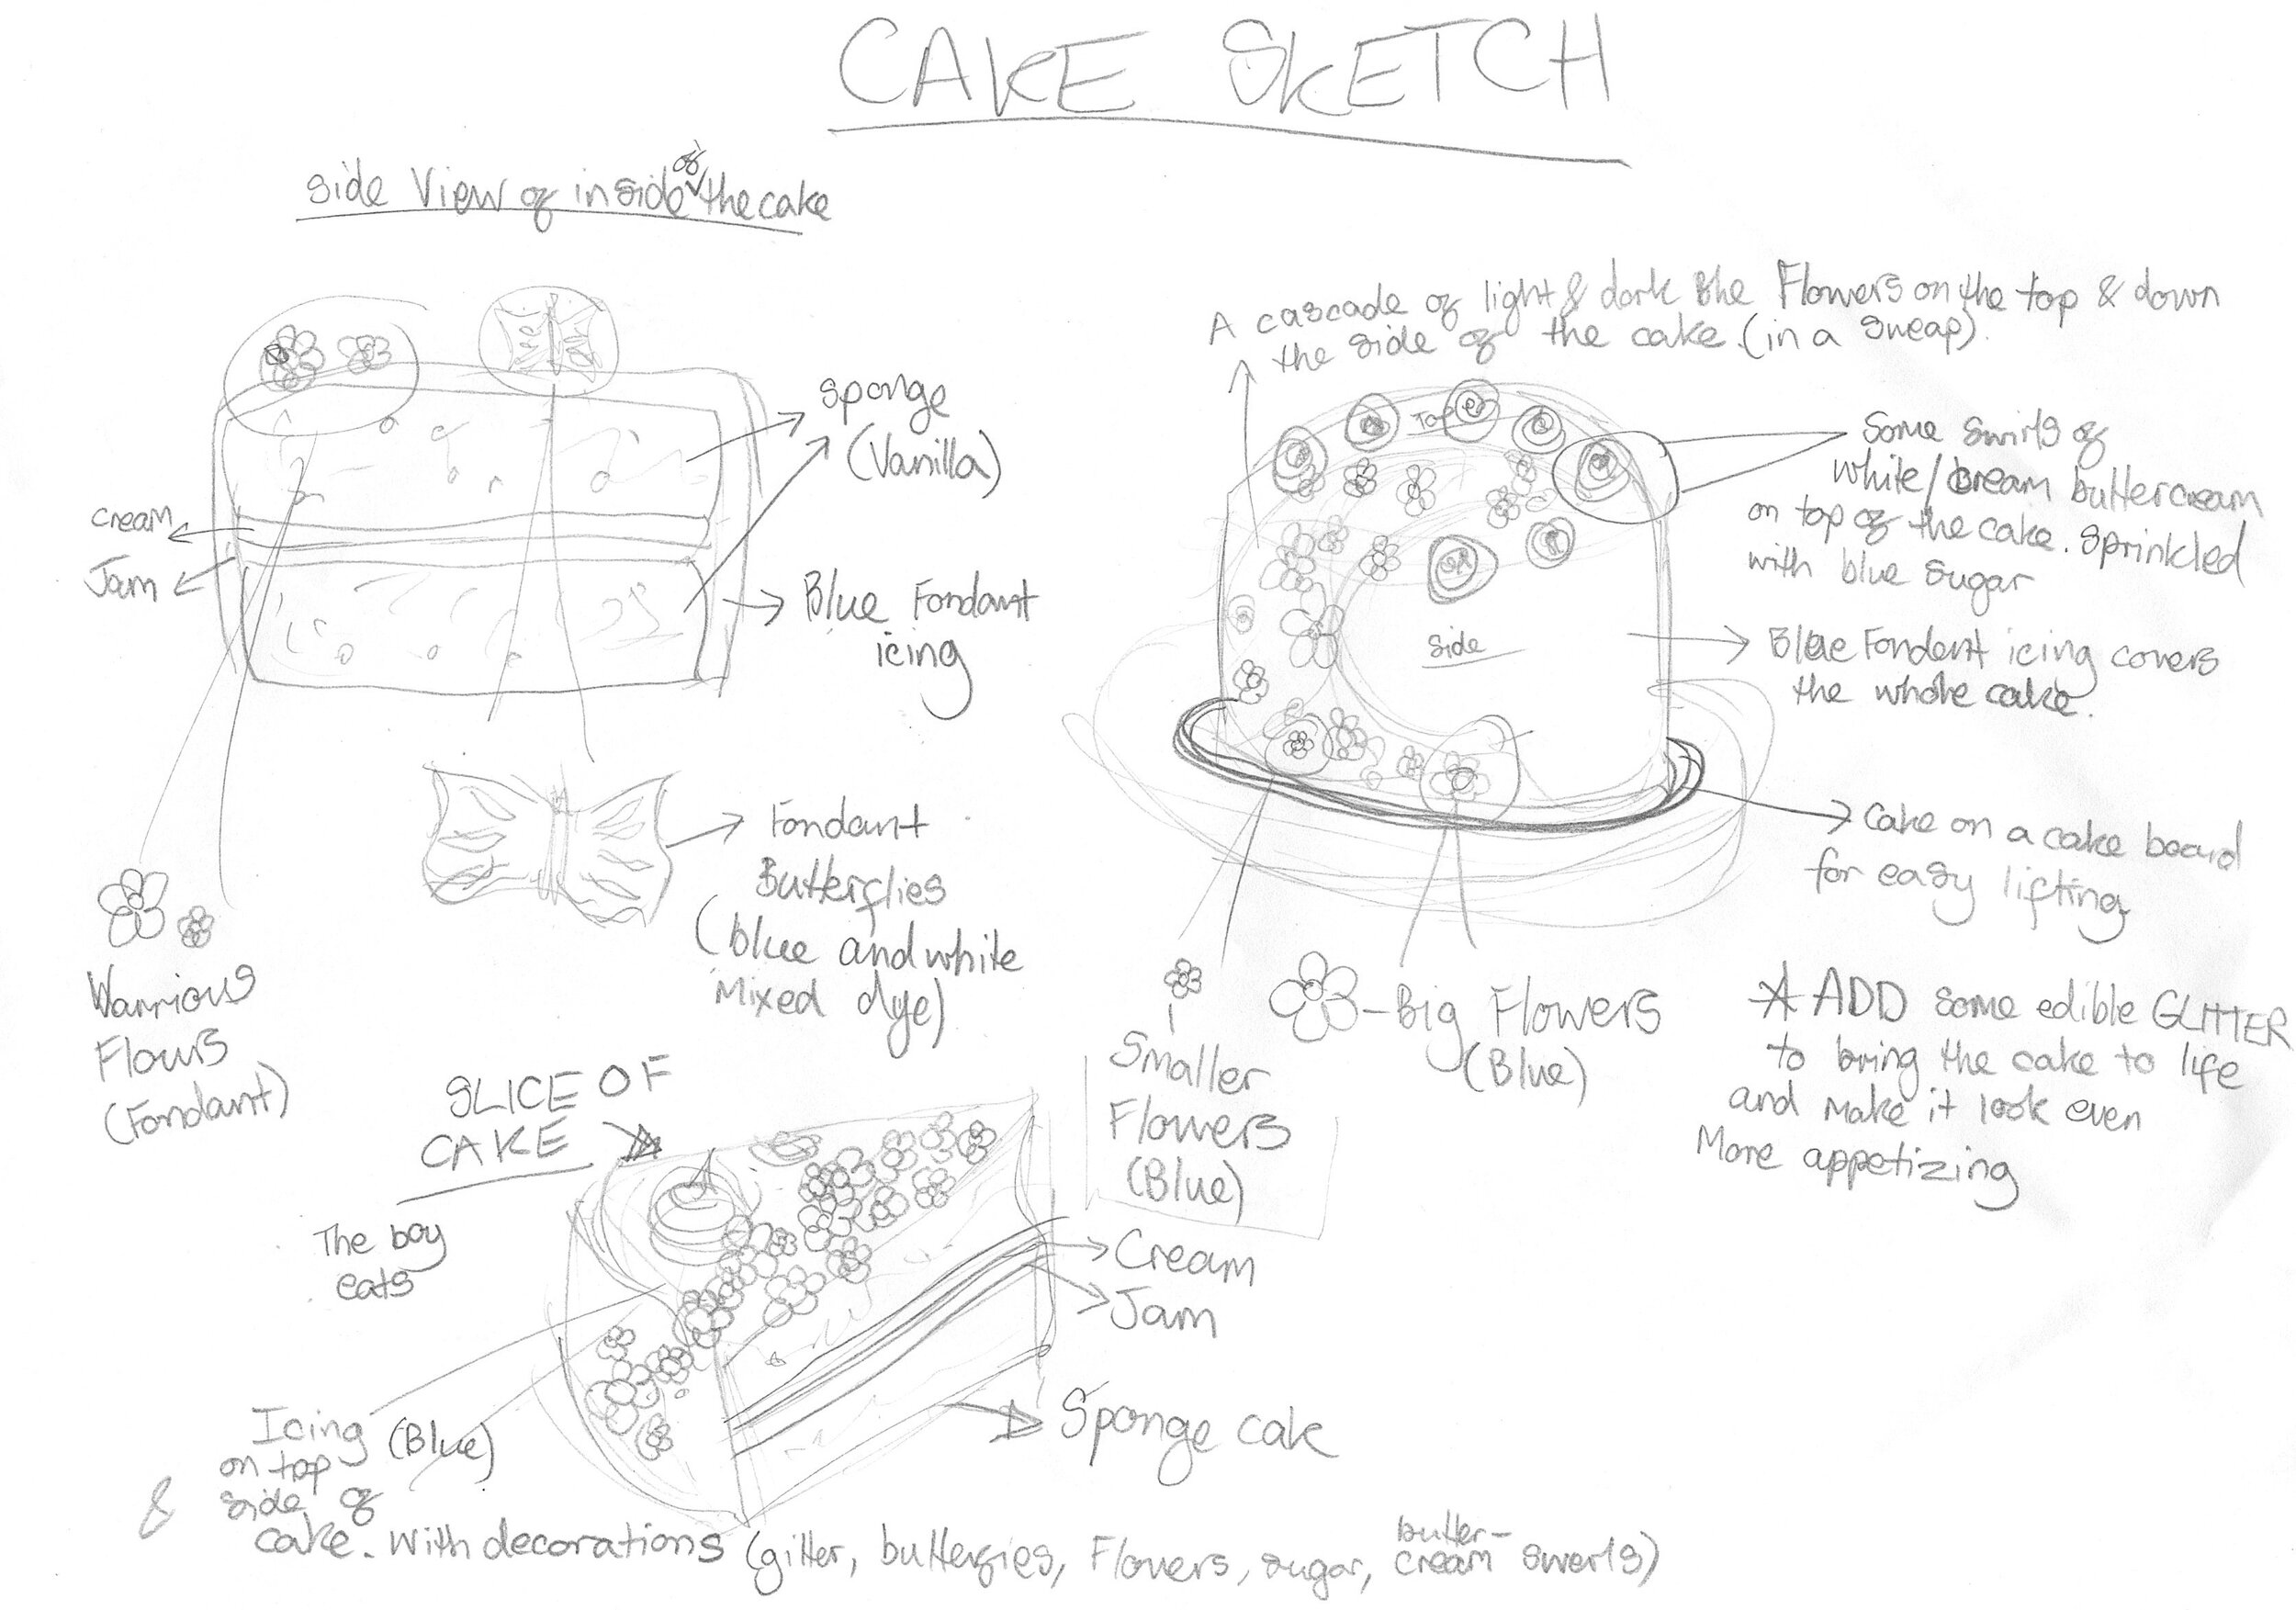 CAKE SKETCH
Side View of inside of the cake
sponge
(Vanilla)
cream
Jam
Blue Fondant
icing
Fondant
Butterflies
(blue and white
Mixed dye)
Warrious
Flours
(Fondant)
A cascade of light & dark Blue Flowers on the top & down
the side of the cake. (in a sweap).
Top
Some swirls of
white/cream buttercream
on top of the cake. Sprinkled
with blue sugar
Side
Blue Fondant icing covers
the whole cake.
Cake on a cake board
for easy lifting
Smaller
Flowers
(Blue)
Big Flowers
(Blue)
ADD some edible GLITTER
to bring the cake to life
and make it look even
More appetizing
SLICE OF
CAKE
The boy
eats
Cream
Jam
Sponge cake
Icing
on top (Blue)
& side of
cake. With decorations (gitter, butterfies, Flowers, sugar, butter-
cream swerls)